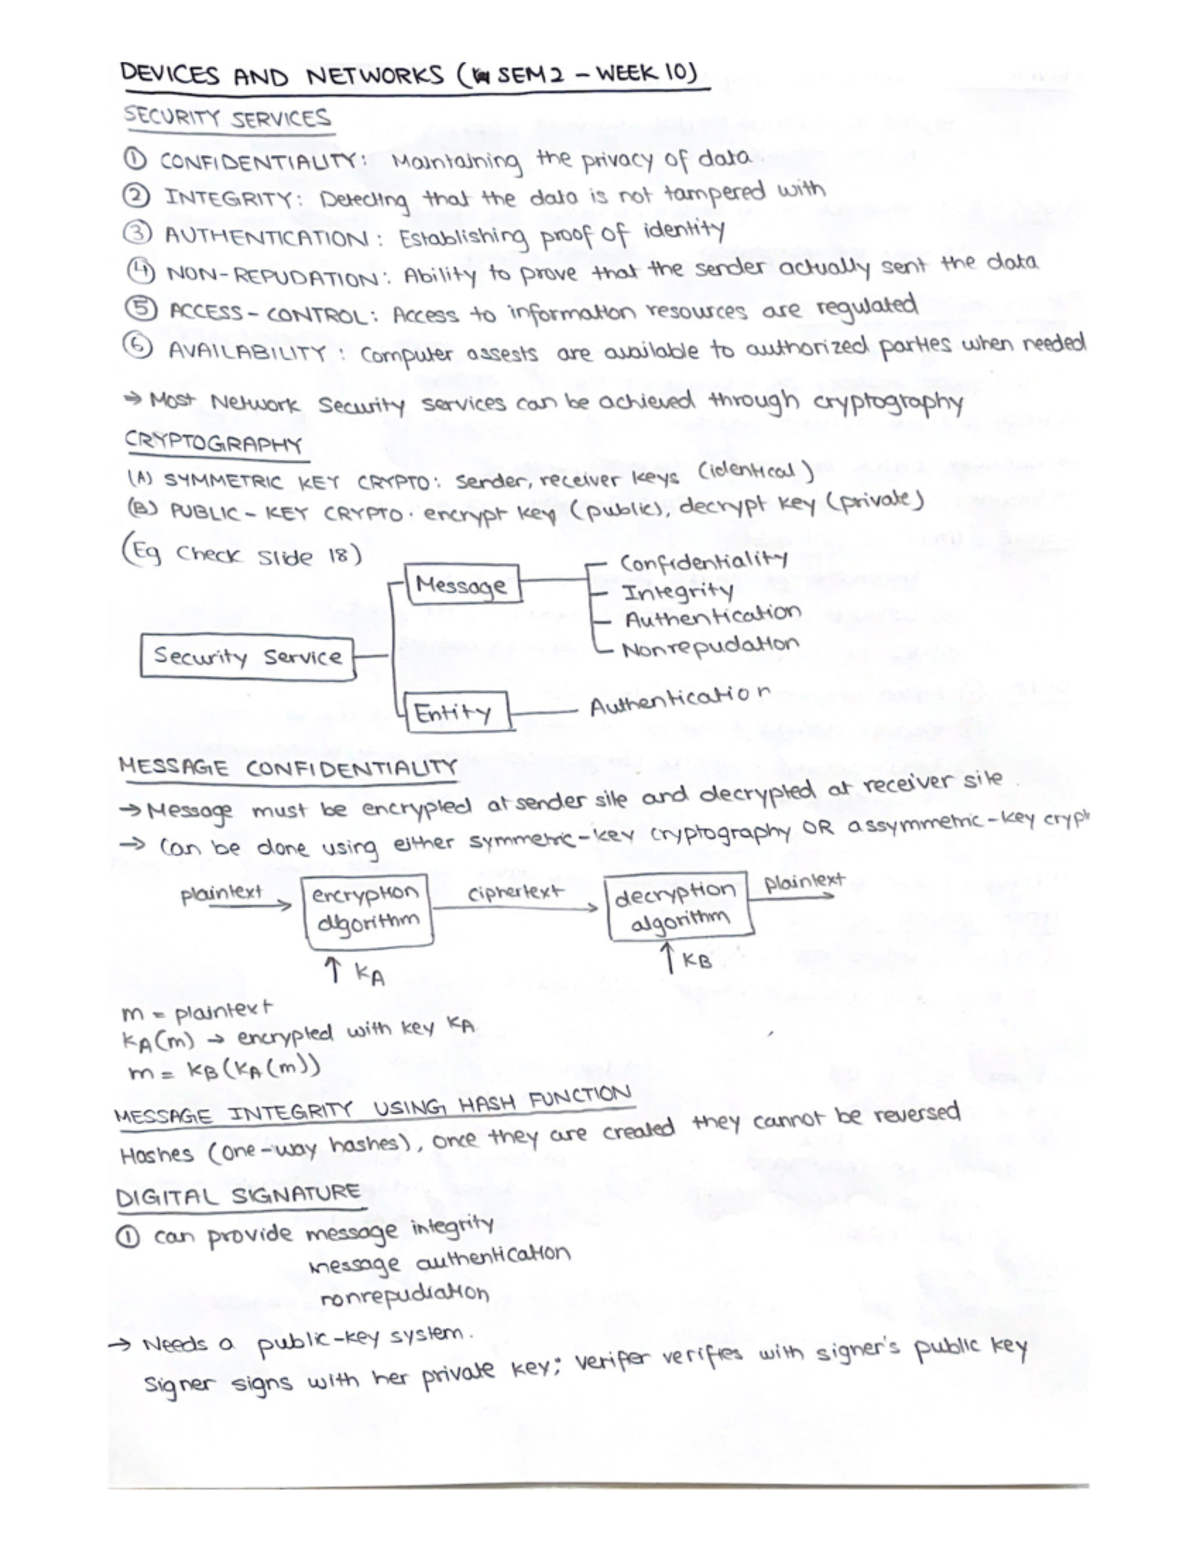 DEVICES AND NETWORKS ( SEM 2 - WEEK 10)
SECURITY SERVICES
① CONFIDENTIALITY: Maintaining the privacy of data
② INTEGRITY: Detecting that the data is not tampered with
③ AUTHENTICATION: Establishing proof of identity
④ NON-REPUDATION: Ability to prove that the sender actually sent the data
⑤ ACCESS-CONTROL: Access to information resources are regulated
⑥ AVAILABILITY: Computer assests are available to authorized parties when needed
→ Most Network Security services can be achieved through cryptography
CRYPTOGRAPHY
(A) SYMMETRIC KEY CRYPTO: Sender, receiver keys (identical)
(B) PUBLIC-KEY CRYPTO. encrypt key (public), decrypt key (private)
(Eg Check Slide 18)
Security Service
Message
Confidentiality
Integrity
Authentication
Nonrepudation
Entity
Authentication
MESSAGE CONFIDENTIALITY
→ Message must be encrypted at sender site and decrypted at receiver site
→ Can be done using either symmetric-key cryptography OR assymmetric-key crypt
plaintext encryption algorithm ciphertext decryption algorithm plaintext
↑ KA ↑ KB
m = plaintext
KA(m) → encrypted with key KA
m = KB(KA(m))
MESSAGE INTEGRITY USING HASH FUNCTION
Hashes (one-way hashes), once they are created they cannot be reversed
DIGITAL SIGNATURE
① can provide message integrity
message authentication
nonrepudiation
→ Needs a public-key system.
Signer signs with her private key; verifer verifies with signer's public key